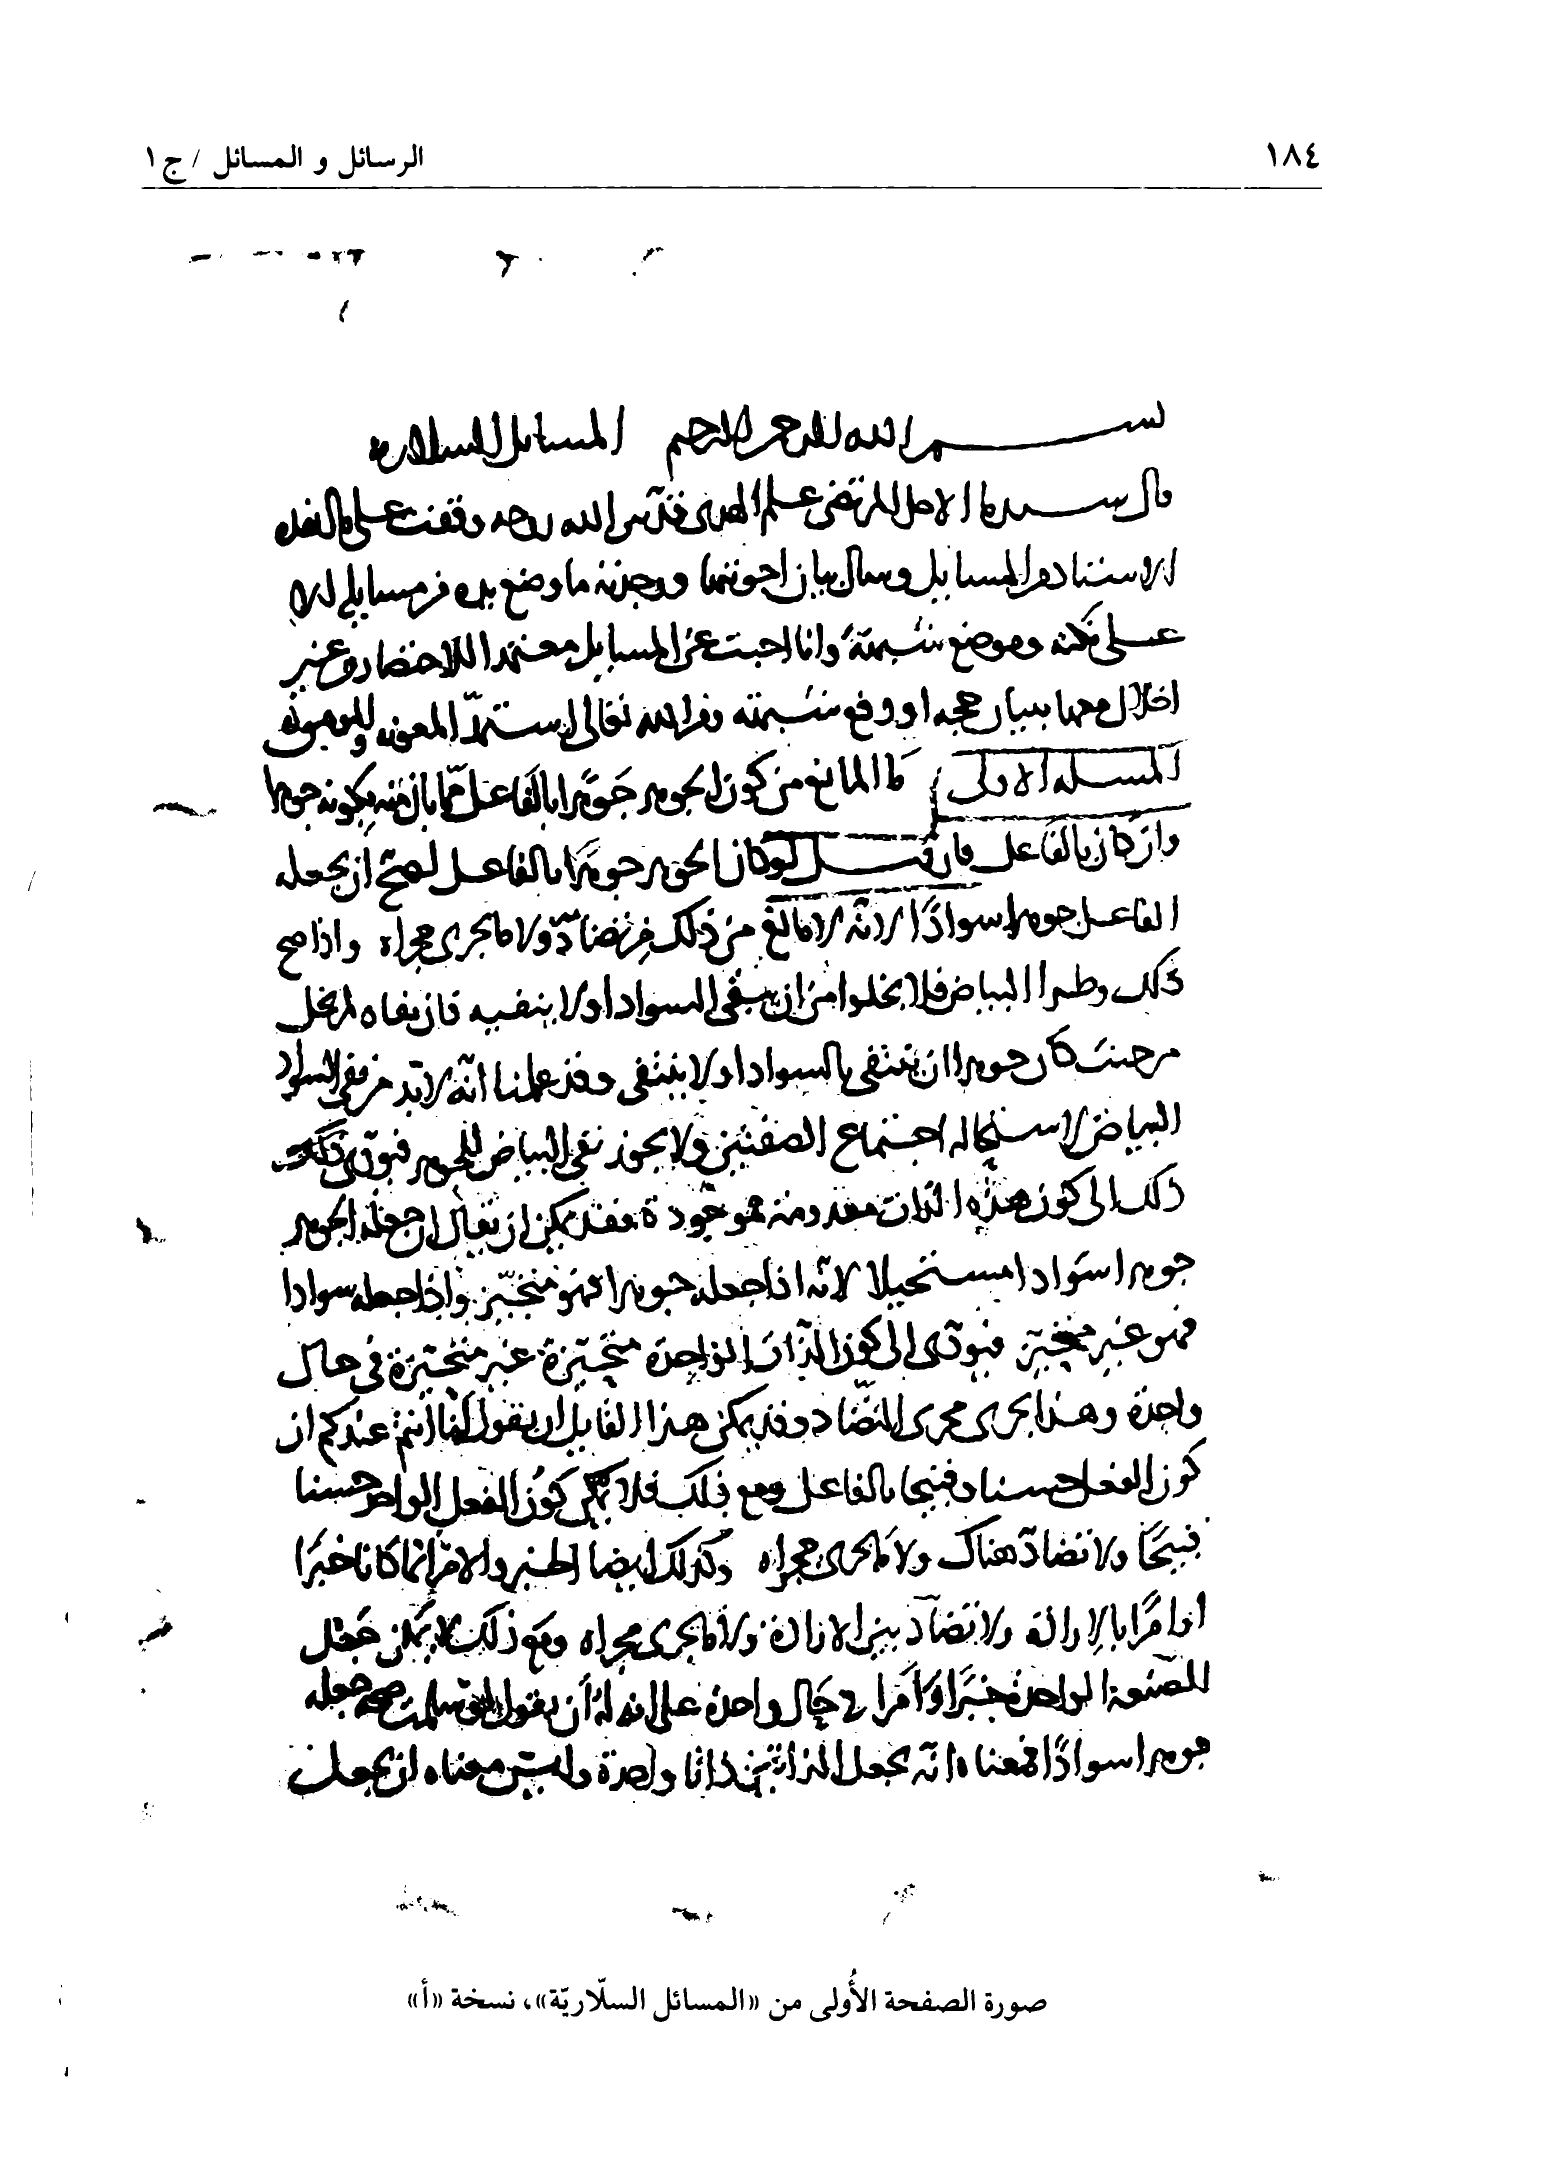 ١٨٤
الرسائل و المسائل / ج ١
بسم الله الرحمن الرحيم المسائل السلارية
قال سيدنا الاجل المرتضى علم الهدى قدس الله روحه وقفت على ما انفذه
الاستاذ من المسايل وسال بيان اجوبتها ووجدته ما وضع يده من مسايله الا
على نكته وموضع شبهة وانا اجبت عن المسايل معتمدا للاختصار من غير
اخلال معهما ببيان حجه او دفع شبهته ومن الله تعالى استمد المعونه
المسله الاولى ما المانع من كون الجوهر جوهرا بالفاعل مما بان منه بكونه جوهرا
وان كان بالفاعل فان قيل لو كان الجوهر جوهرا بالفاعل لصح ان يجعله
الفاعل جوهرا سوادا لانه لا مانع من ذلك من تضاد ولا ما يجرى مجراه واذا صح
ذلك وطرا البياض فلا يخلوا من ان ينفى السواد او لا ينفيه فان نفاه لم يخل
من حيث كان جوهرا ان ينتفى بالسواد او لا ينتفى وقد علمنا انه لا بد من نفى السواد
البياض لاستحاله اجتماع الصفتين ولا يجوز نفى البياض للجوهر فيودى
ذلك الى كون هذه الذات معدومة موجودة فقد يمكن ان يقال ان جعله الجوهر
جوهرا سوادا مستحيلا لانه اذا جعله جوهرا فهو متحيز واذا جعله سوادا
فهو غير متحيز فيودى الى كون الذات الواحدة متحيزة غير متحيزة فى حال
واحدة وهذا يجرى مجرى التضاد وقد يمكن هذا القايل ان يقول لنا انتم عندكم ان
كون الفعل حسنا وقبيحا بالفاعل ومع ذلك فلا يمكن كون الفعل الواحد حسنا
قبيحا ولا تضاد هناك ولا ما يجرى مجراه وكذلك ايضا الخبر والامر انما كانا خبرا
او امرا بالارادة ولا تضاد بين الارادة ولا ما يجرى مجراه ومع ذلك لا يمكن جعل
الصيغة الواحدة خبرا وامرا فى حال واحدة على انه له ان يقول صحة جعله
جوهرا سوادا فمعناه انه يجعل الذاتين ذاتا واحدة وليس معناه ان يجعل
صورة الصفحة الأُولى من «المسائل السلّاريّة»، نسخة «أ»